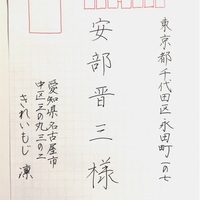 東京都千代田区永田町一の七
安部晋三様
愛知県名古屋市
中区三の丸三の二
きれいもじ 凛